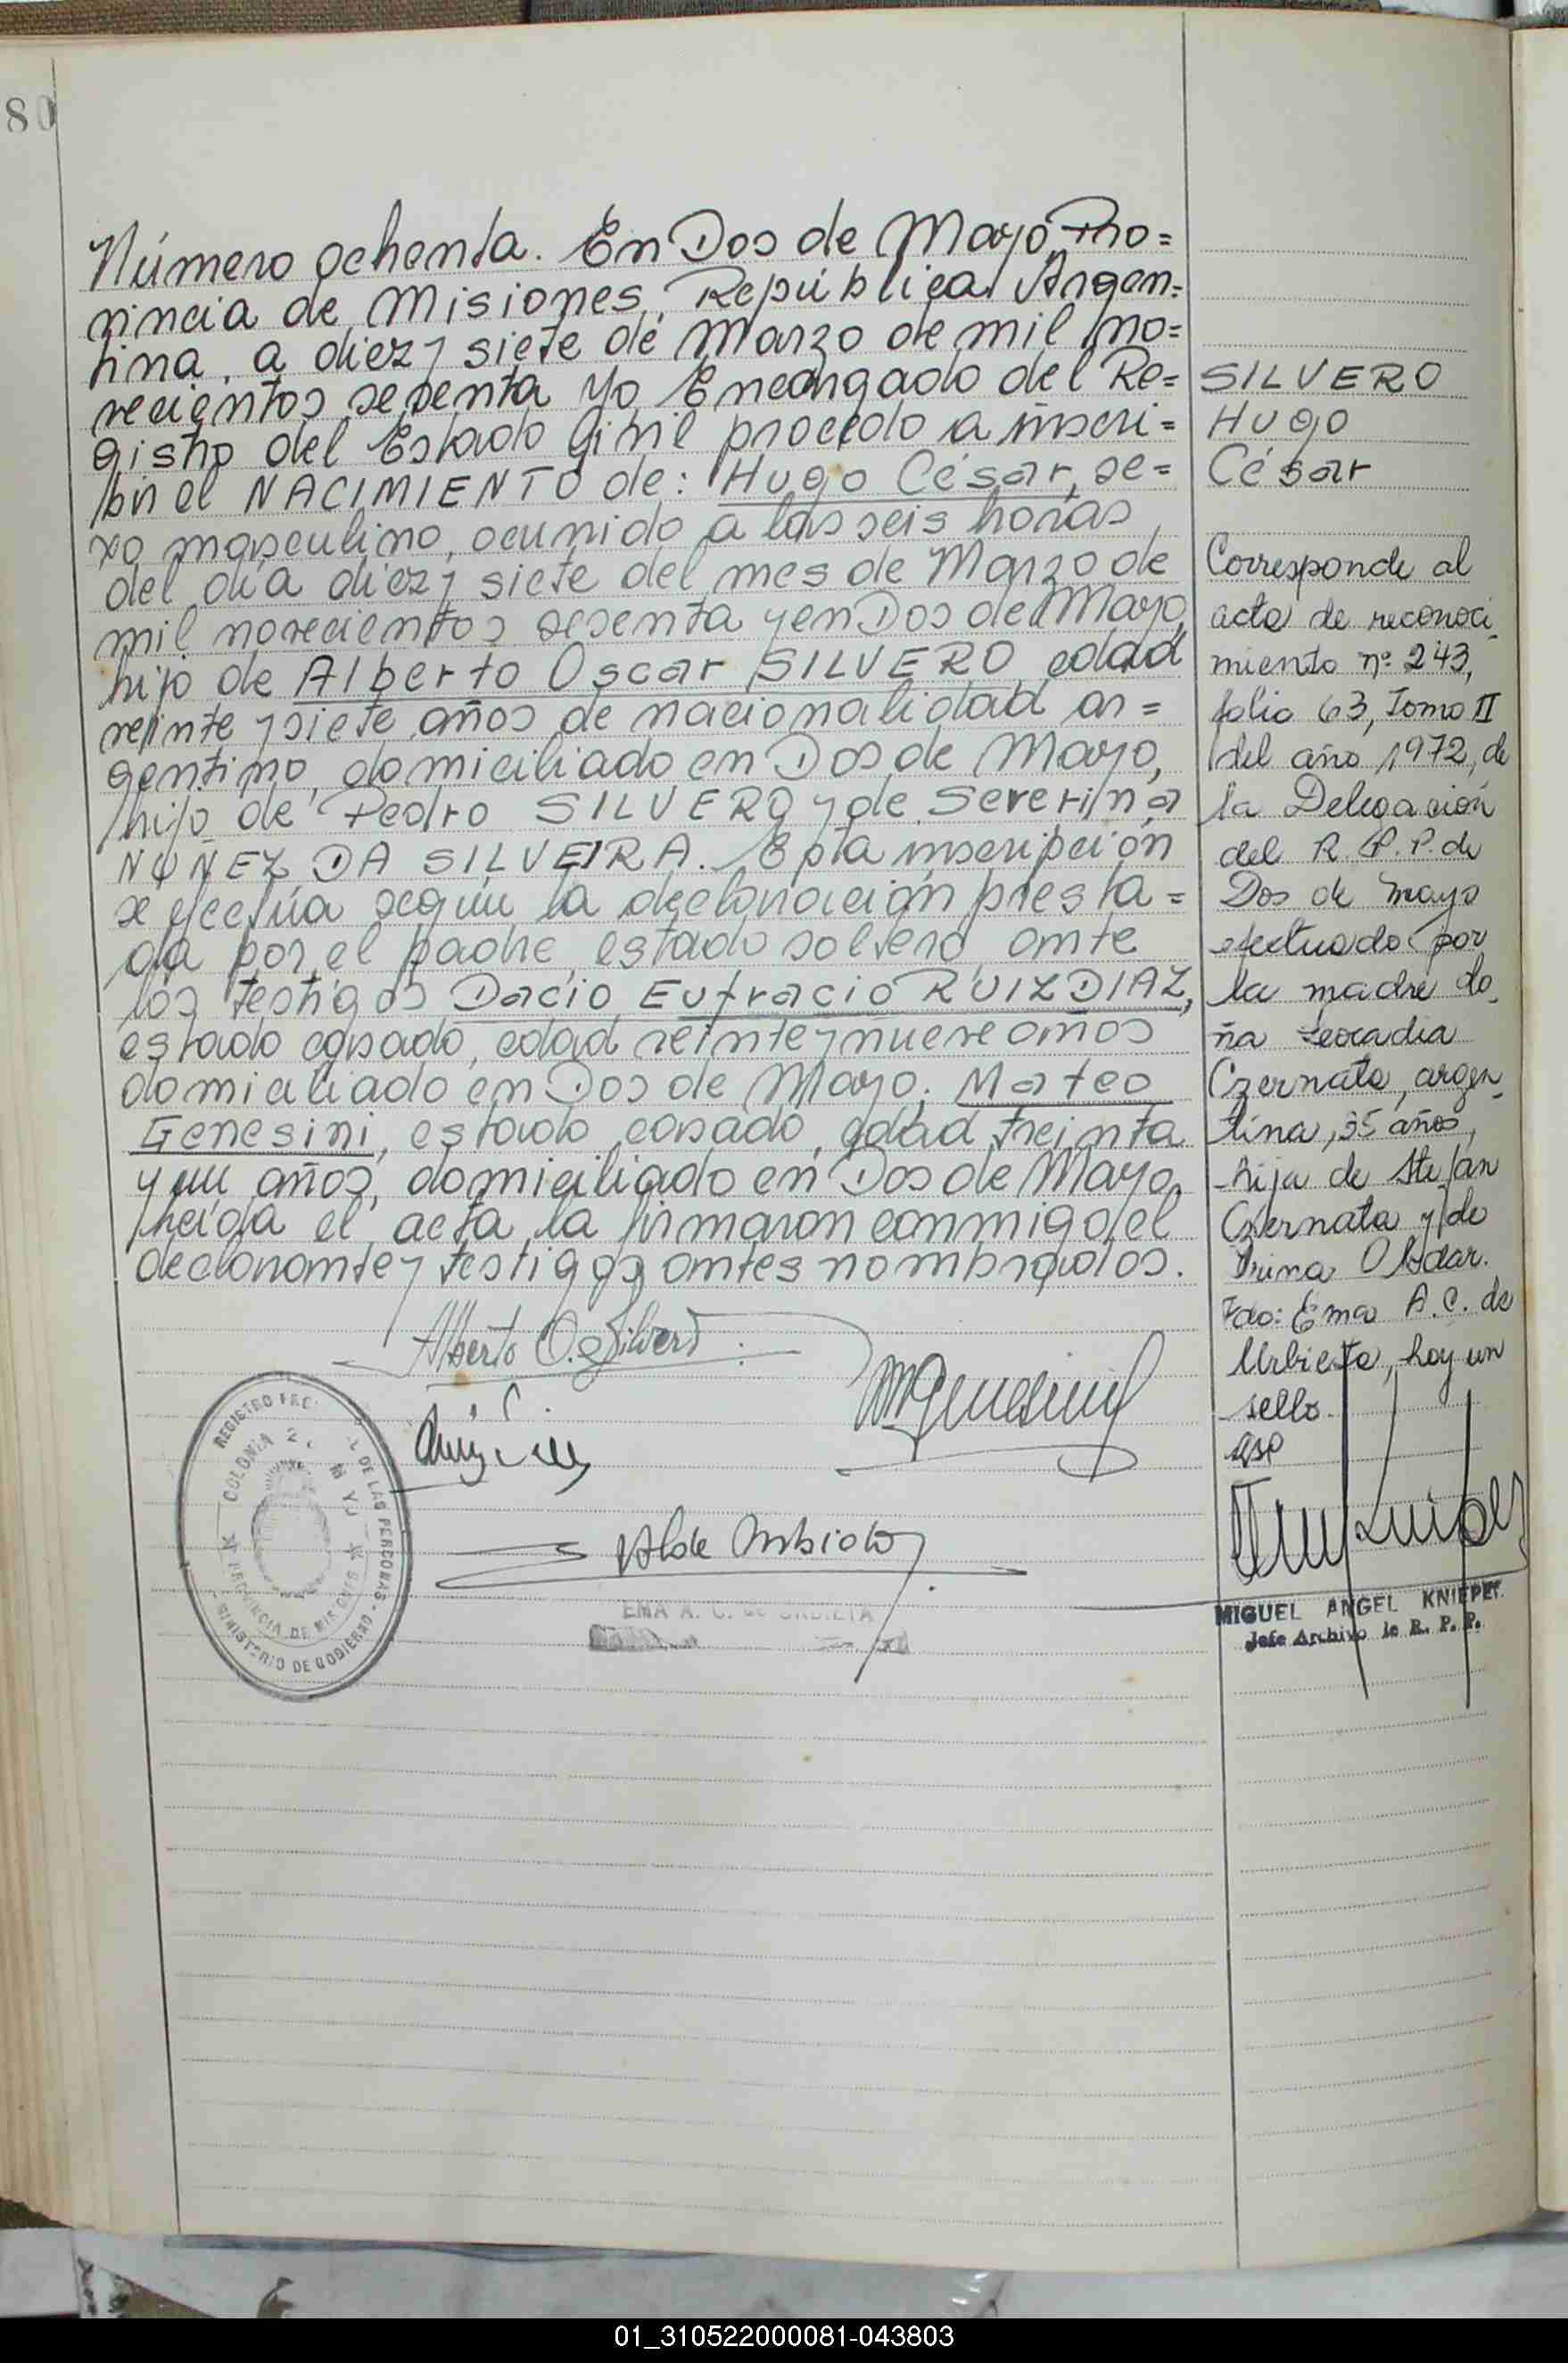 80
Número ochenta. En Dos de Mayo, Pro=
vincia de Misiones, República Argen=
tina, a diez y siete de Marzo de mil no=
vecientos sesenta yo Encargado del Re=
gistro del Estado Civil procedo a inscri=
bir el NACIMIENTO de: Hugo César, se=
xo masculino, ocurrido a las seis horas
del día diez y siete del mes de Marzo de
mil novecientos sesenta y en Dos de Mayo,
hijo de Alberto Oscar SILVERO, edad
veinte y siete años, de nacionalidad ar=
gentino, domiciliado en Dos de Mayo,
hijo de Pedro SILVERO y de Severina
NUÑEZ DA SILVEIRA. Esta inscripción
se efectúa según la declaración presta=
da por el padre, estado soltero, ante
los testigos Dacio Eufracio RUIZ DIAZ,
estado casado, edad veinte y nueve años
domiciliado en Dos de Mayo. Mateo
Genesini, estado casado, edad treinta
y un años, domiciliado en Dos de Mayo,
leída el acta, la firmaron conmigo el
declarante y testigos antes nombrados.
Alberto O. Silvero
REGISTRO DE LAS PERSONAS
COLONIA 2
PROVINCIA DE MISIONES
MINISTERIO DE GOBIERNO
EMA A. C. de URBIETA
SILVERO
Hugo
César
Corresponde al
acta de reconoci-
miento nº 243,
folio 63, Tomo II
del año 1972, de
la Delegación
del R. P. P. de
Dos de Mayo
efectuado por
la madre do-
ña Leocadia
Czernata, argen-
tina, 35 años,
hija de Stefan
Czernata y de
Fdo: Ema A. C. de
Urbieta, hay un
sello.
MIGUEL ANGEL KNIEPER
Jefe Archivo de R. P. P.
01_310522000081-043803